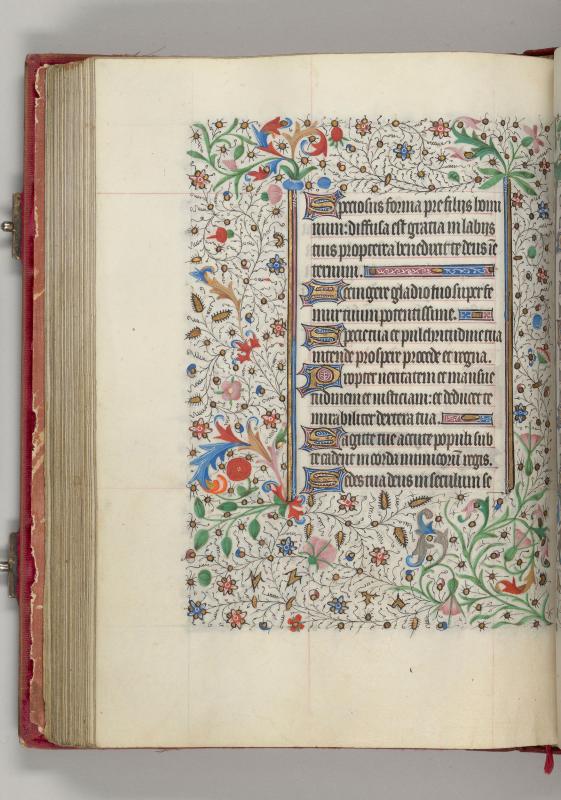 Speciosus forma pre filijs homi
num: diffusa est gracia in labijs
tuis propterea benedixit te deus in e
ternum.
Accingere gladio tuo super fe
mur tuum potentissime.
Specie tua et pulchritudine tua
intende prospere procede et regna.
Propter ueritatem et mansue
tudinem et iusticiam: et deducet te
mirabiliter dextera tua.
Sagitte tue acute populi sub
te cadent in corda inimicorum regis.
Sedes tua deus in seculum se